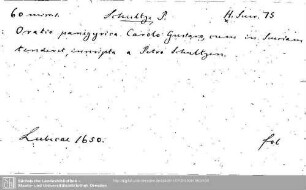 60 misc. Schultze P. H. Suec. 75
Oratio panegyrica Carolo Gustavo, cum in Sueciam
tenderet, conscripta a Petro Schultzen.
Lubecae 1650. fol
Sächsische Landesbibliothek -
Staats- und Universitätsbibliothek Dresden